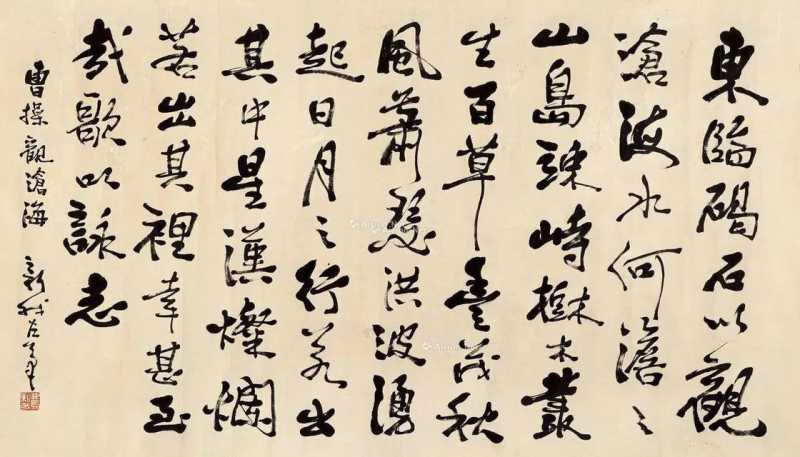 東臨碣石以觀
滄海水何澹々
山島竦峙樹木叢
生百草豊茂秋
風蕭瑟洪波湧
起日月之行若出
其中星漢燦爛
若出其裡幸甚至
哉歌以詠志
曹操觀滄海